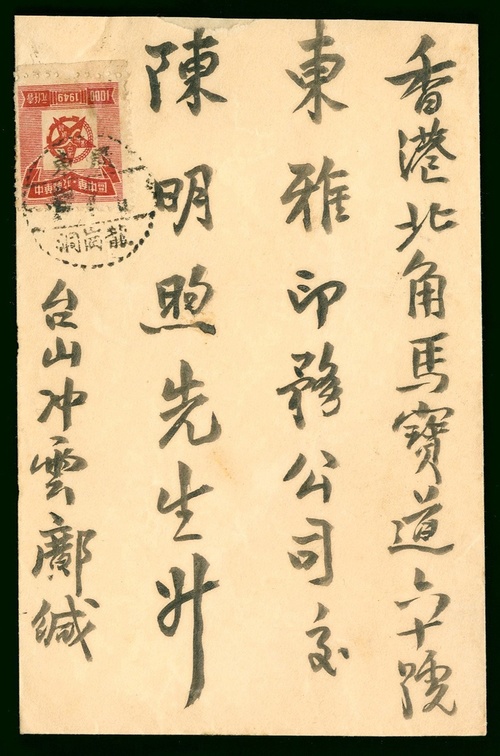 香港北角馬寶道六十號
東雅印務公司交
陳明煦先生升
台山冲雲鄺緘
1000 1949
龍岗洞